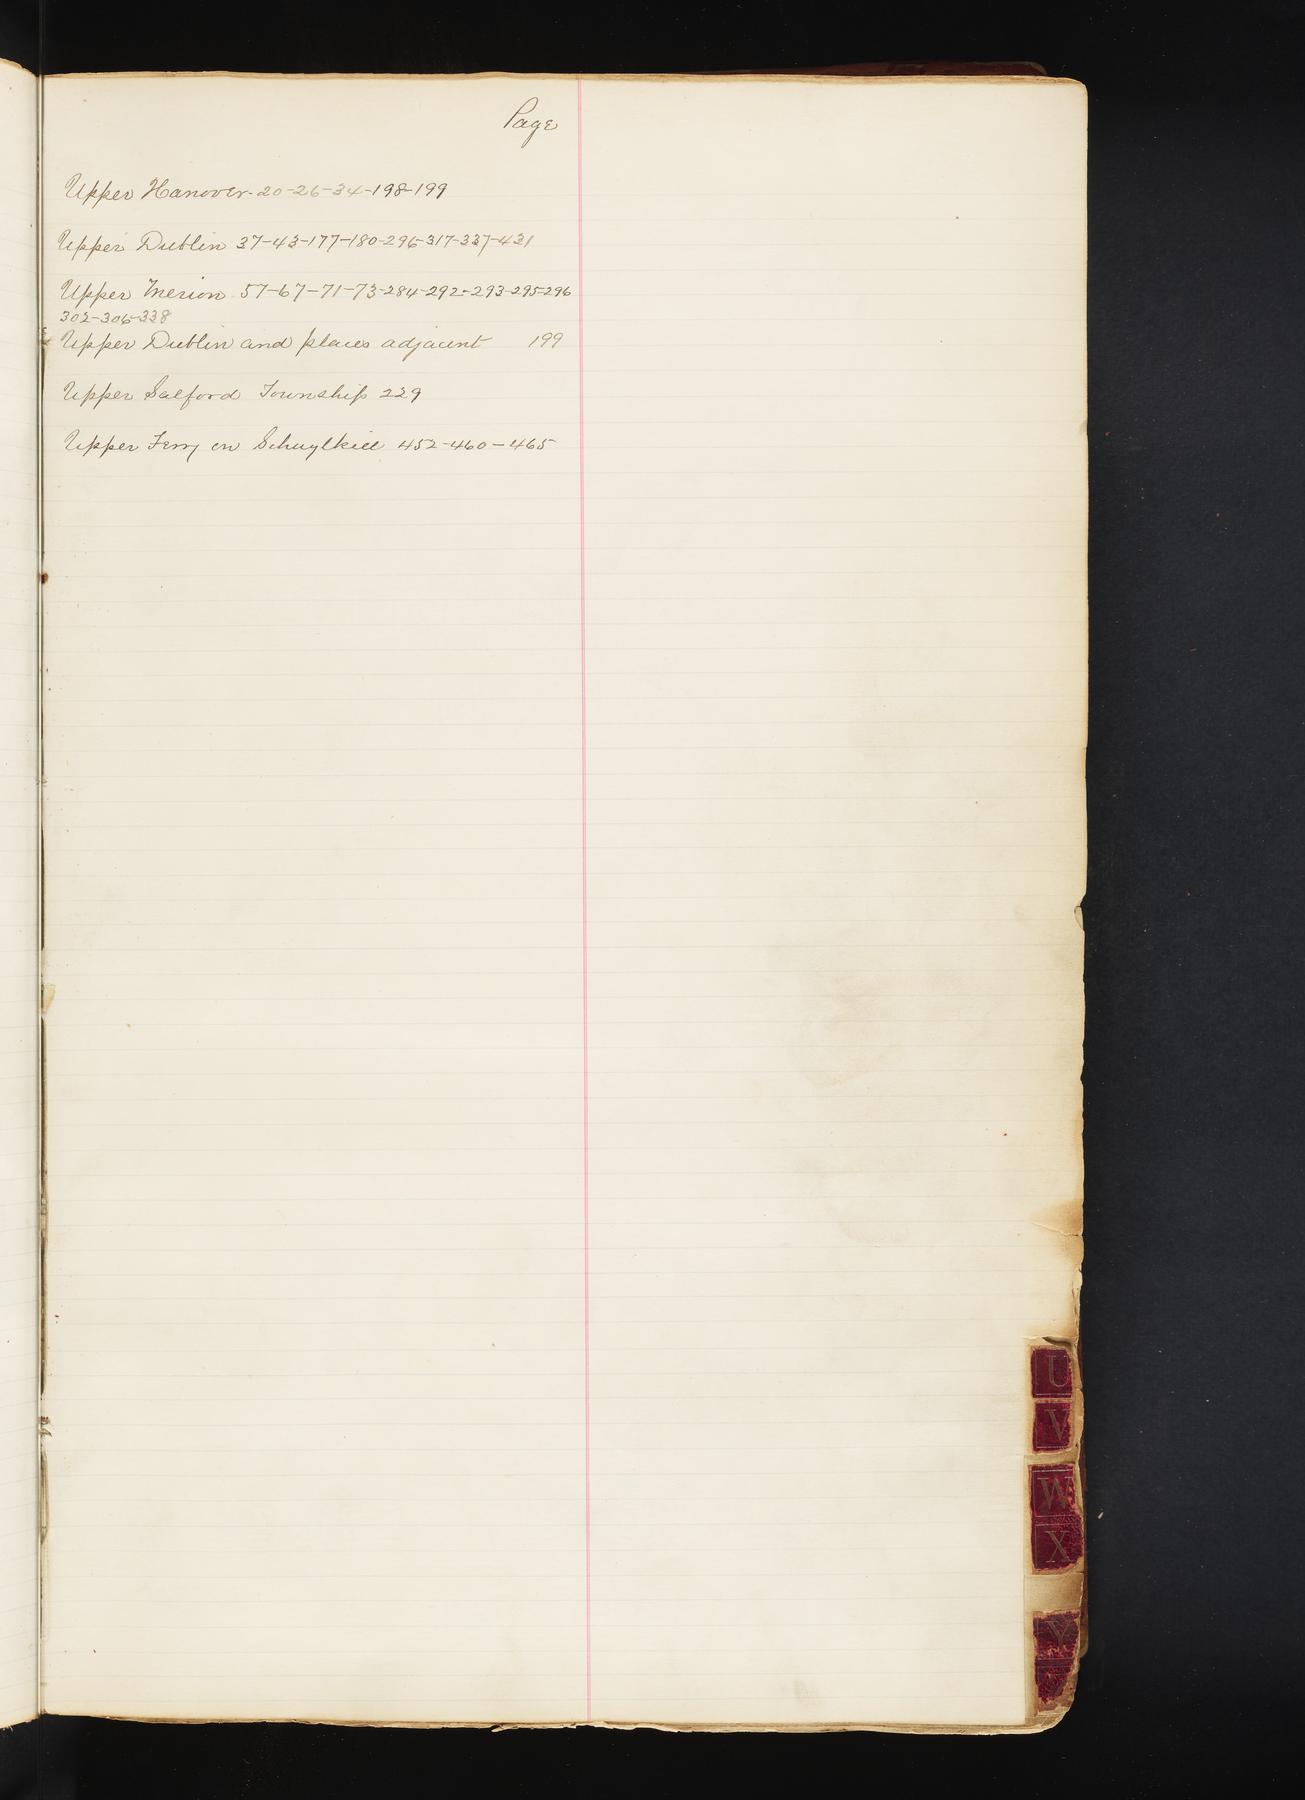 Page
Upper Hanover-20-26-34-198-199
Upper Dublin 37-43-177-180-296-317-337-431
Upper Merion 57-67-71-73-284-292-293-295-296
302-306-338
Upper Dublin and places adjacent 199
Upper Salford Township 229
Upper Ferry on Schuylkill 452-460-465
U
V
W
X
Y